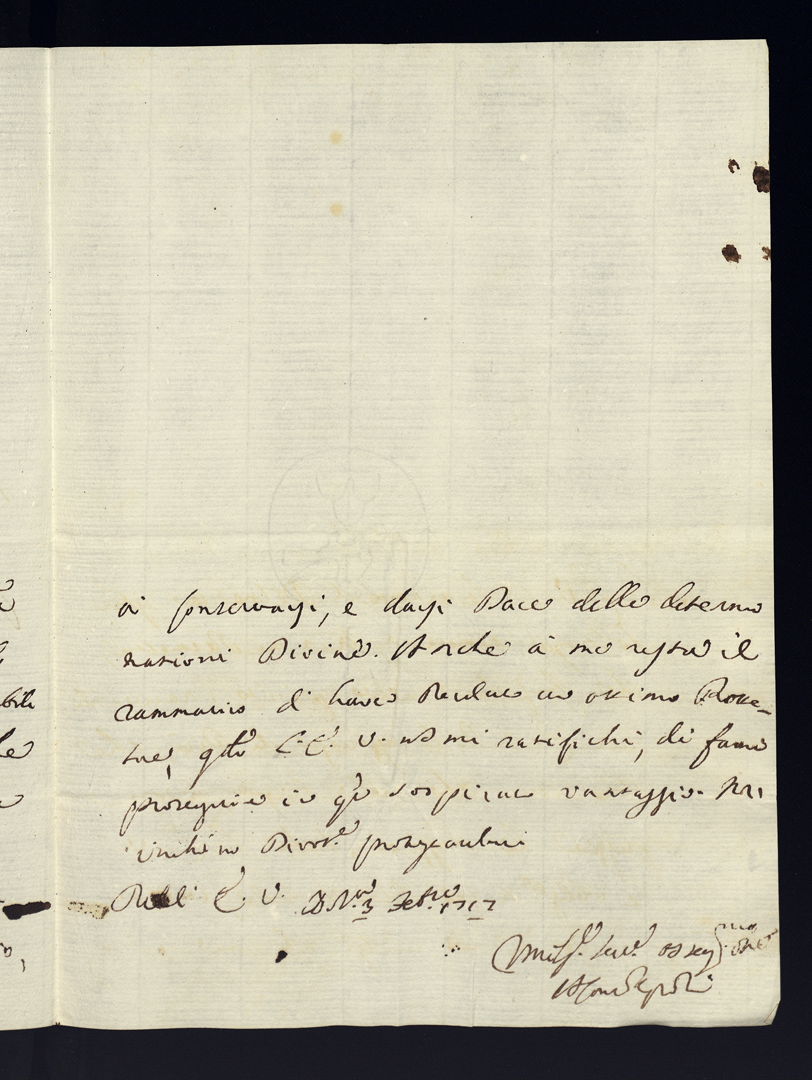 di conservarsi, e darsi Pace delle determi
nationi Divine. Anche à me resta il
rammarico di havere Perduto un ottimo Prote=
tore, qdo L'E. V. nō mi ratifichi, di farmi
proseguire in qto sospirato vantaggio. Mi
inchino Divote. protestandomi
Dell' E. V. 3 Febro. 1717
Umiliss. Serve. osseq